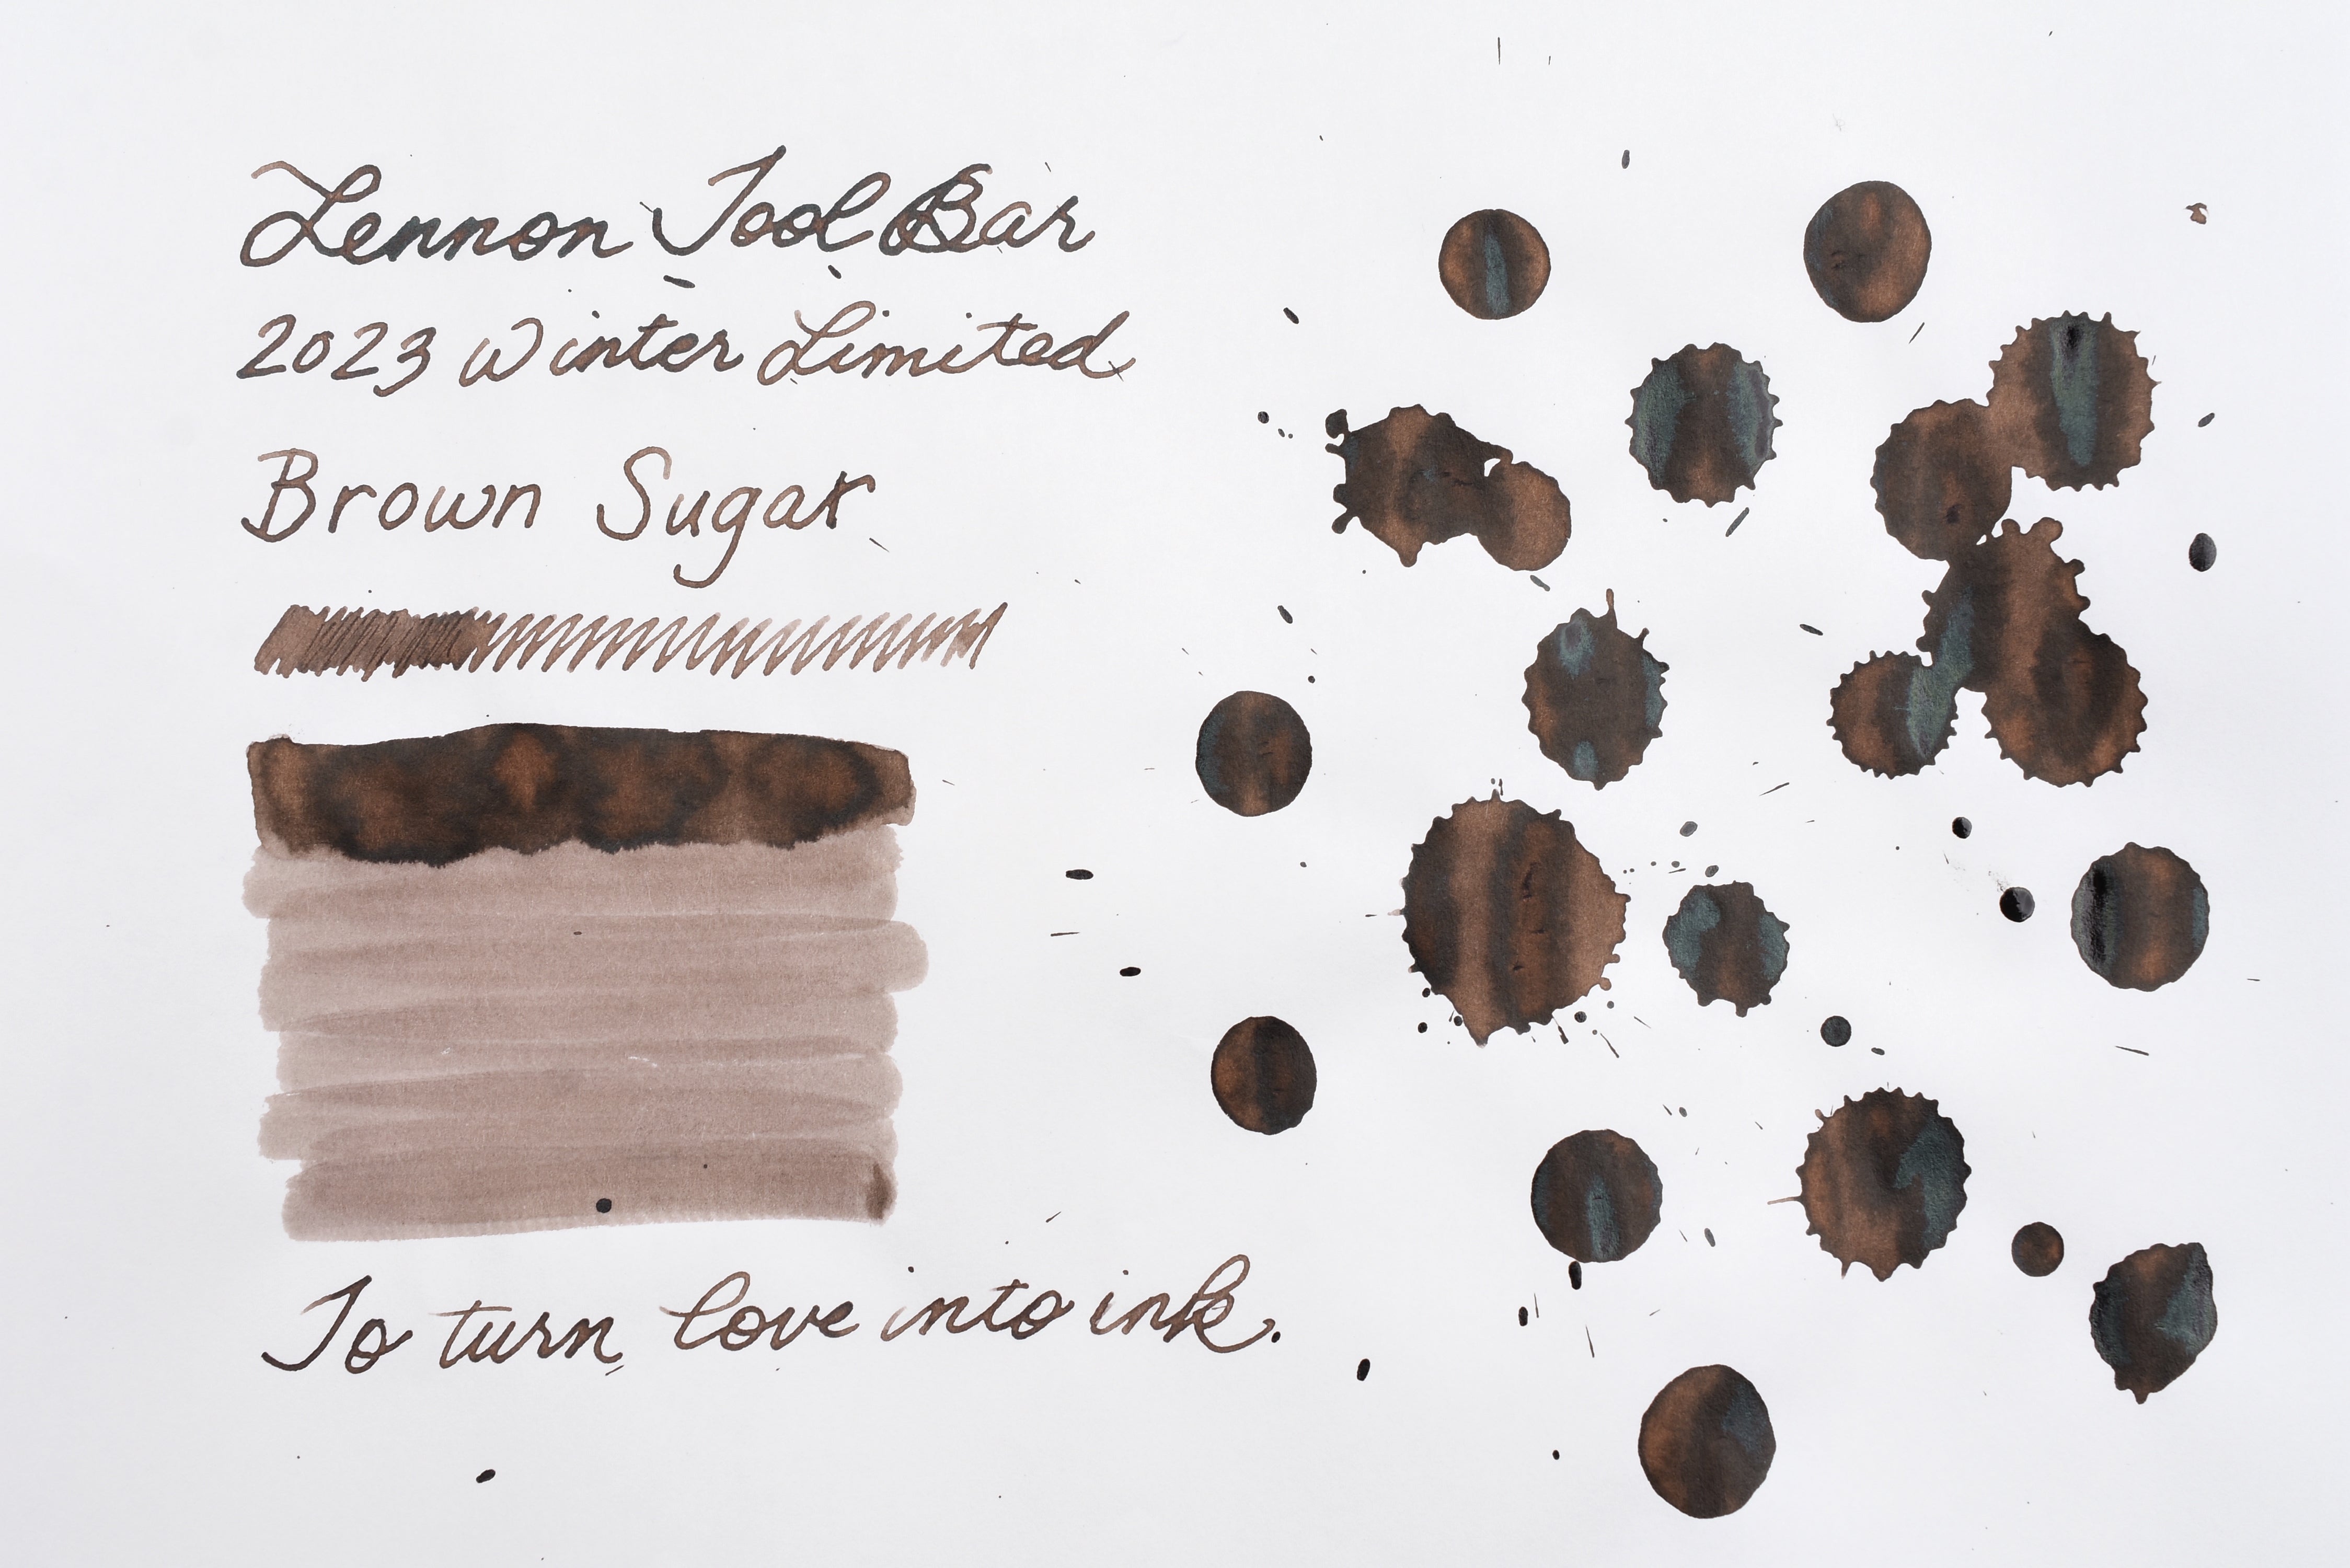 Lennon Tool Bar
2023 Winter Limited
Brown Sugar
To turn love into ink.